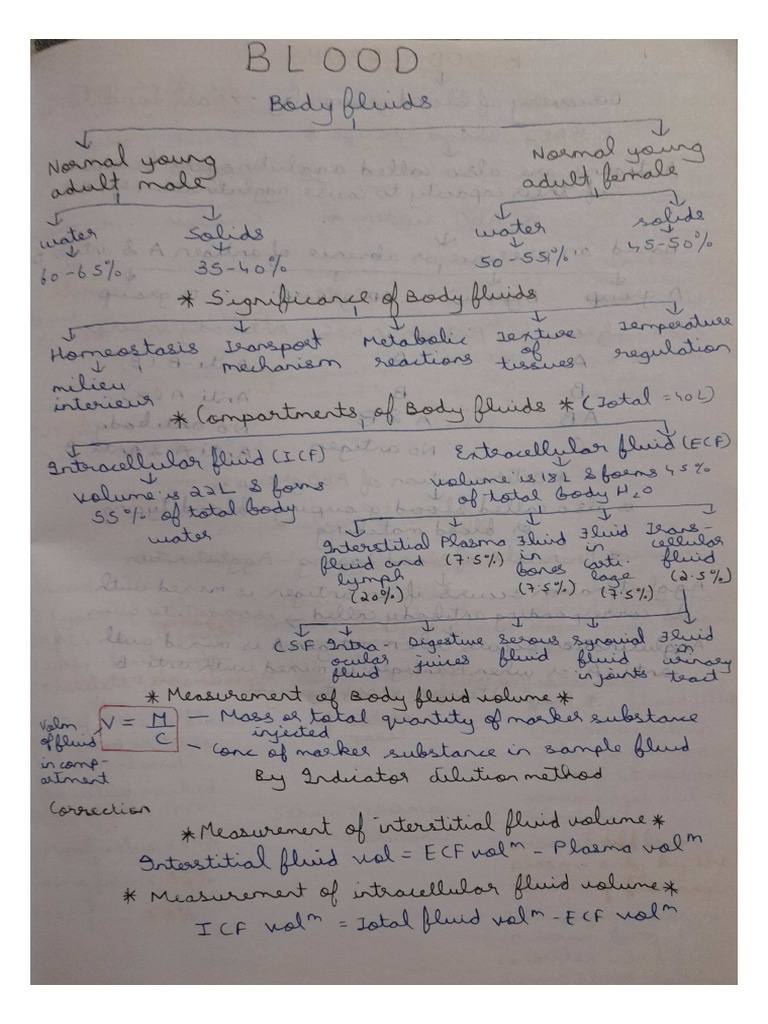 BLOOD
Body fluids
Normal young adult male
Normal young adult female
water
Solids
water
solids
60-65%
35-40%
50-55%
45-50%
* Significance of Body fluids
Homeostasis
Transport mechanism
Metabolic reactions
Texture of tissues
Temperature regulation
milieu interieur
* Compartments of Body fluids * (Total = 40L)
Intracellular fluid (ICF)
Extracellular fluid (ECF)
volume is 22L & forms
55% of total body
water
volume is 18L & forms 45%
of total body H2O
Interstitial fluid and lymph (20%)
Plasma (7.5%)
Fluid in bones (7.5%)
Fluid in carti-lage (7.5%)
Trans-cellular fluid (2.5%)
CSF
Intra-ocular fluid
Digestive juices
Serous fluid
Synovial fluid in joints
Fluid in urinary tract
* Measurement of Body fluid volume *
Volm of fluid in comp-artment
V = M/C
- Mass or total quantity of marker substance
injected
- Conc of marker substance in sample fluid
By Indicator dilution method
Correction
* Measurement of interstitial fluid volume *
Interstitial fluid vol = ECF volm - Plasma volm
* Measurement of intracellular fluid volume *
ICF volm = Total fluid volm - ECF volm